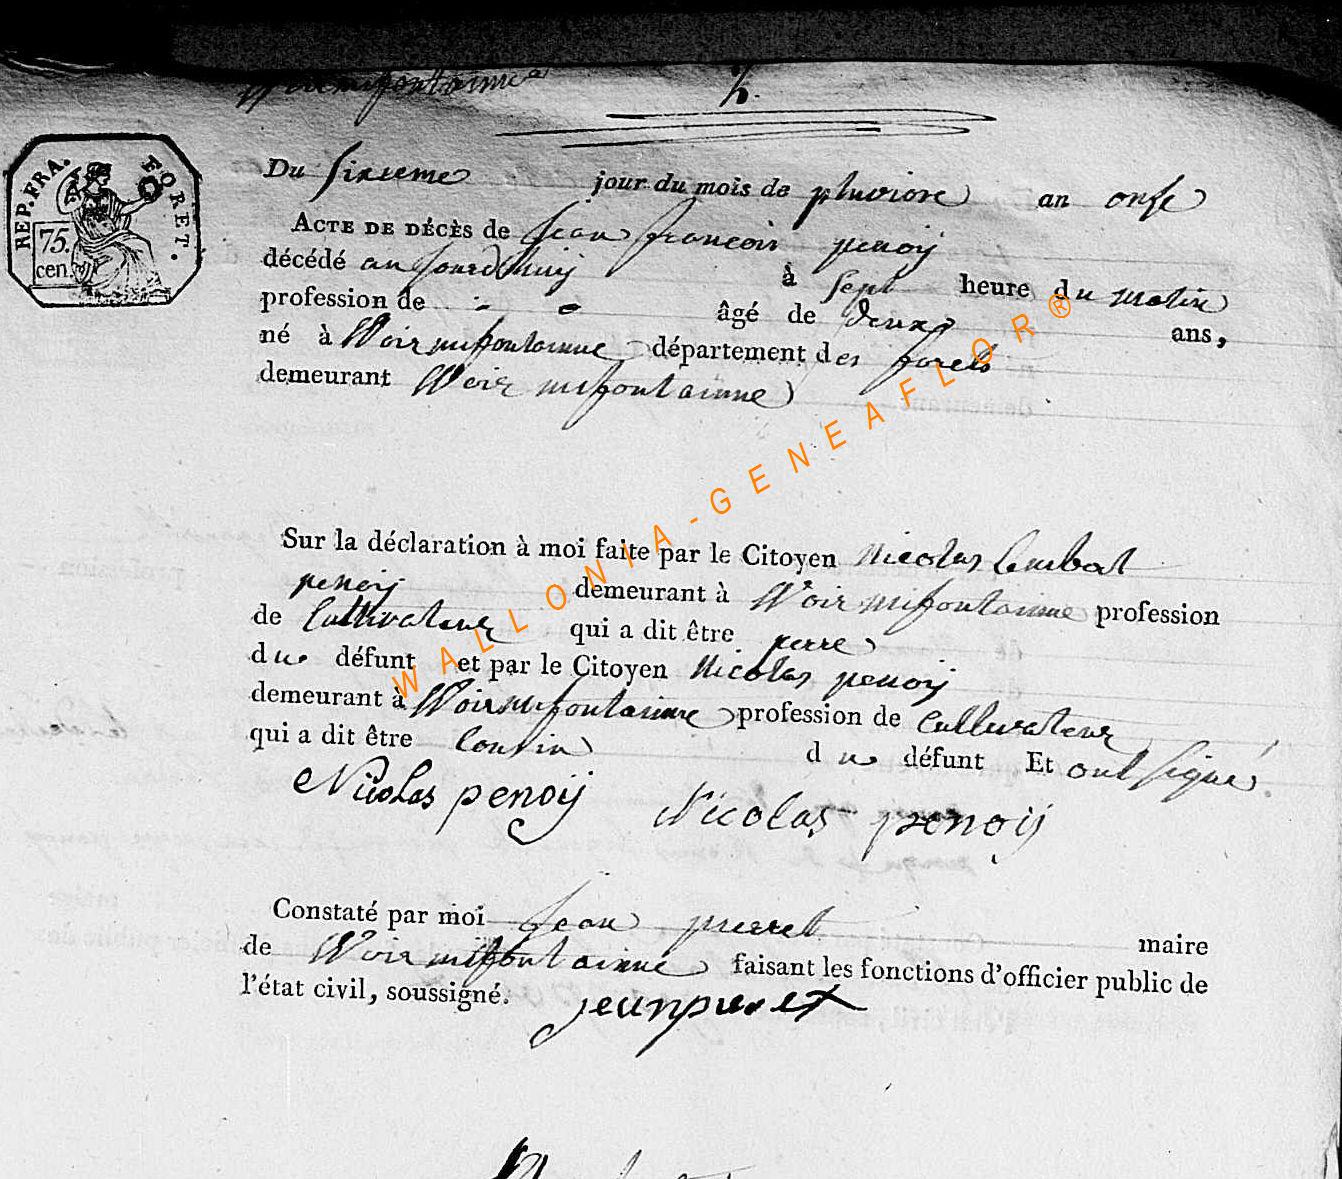 Wermifontaine
2.
REP. FRA. FORET.
75.
cen.
Du sixieme jour du mois de pluviose an onse
ACTE DE DÉCÈS de Jean francois penoij
décédé aujourdhuij à sept heure du matin
profession de - - âgé de deux ans,
né à Woirmifontainne département des forets
demeurant Woirmifontainne
Sur la déclaration à moi faite par le Citoyen Nicolas Lambat
penoij demeurant à Woirmifontainne profession
de Cultivateur qui a dit être perre
du défunt et par le Citoyen Nicolas penoij
demeurant à Woirmifontainne profession de Cultivateur
qui a dit être Cousin du défunt Et ont signé
Nicolas penoij Nicolas penoij
Constaté par moi Jean pierret maire
de Woirmifontainne faisant les fonctions d'officier public de
l'état civil, soussigné. jeanpierret
WALLONIA-GENEAFLOR®